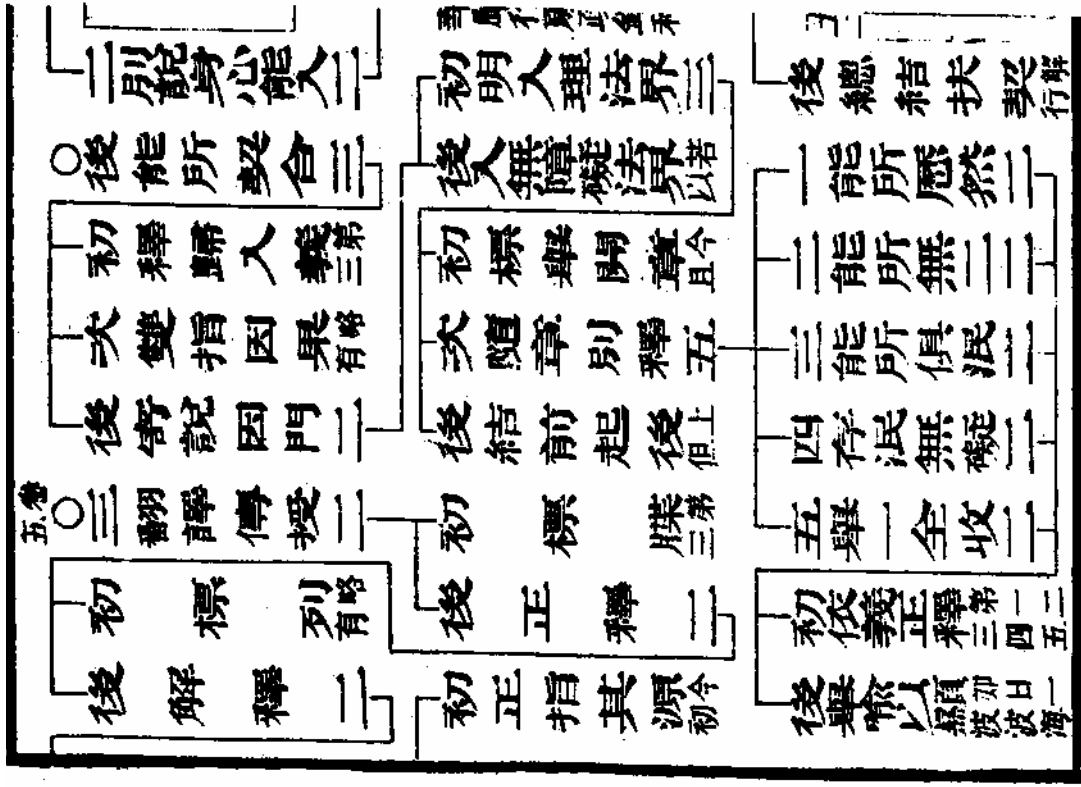 二別說身心能入二
後能所契合三
初釋歸入義第三
次雙指因果略有
後寄說因門二
卷五
三翻譯傳授二
初標列略有
後解釋二
初明入理法界三
後入無障礙法界若以
初標舉開章今且
次隨章別釋五
後結前起後上但
初標牒第三
後正釋二
初正指其源今初
後總結扶契解行
一能所歷然二
二能所無二二
三能所俱泯二
四存泯無礙二
五舉一全收二
初依義正釋第三一四二五
後舉喻以顯